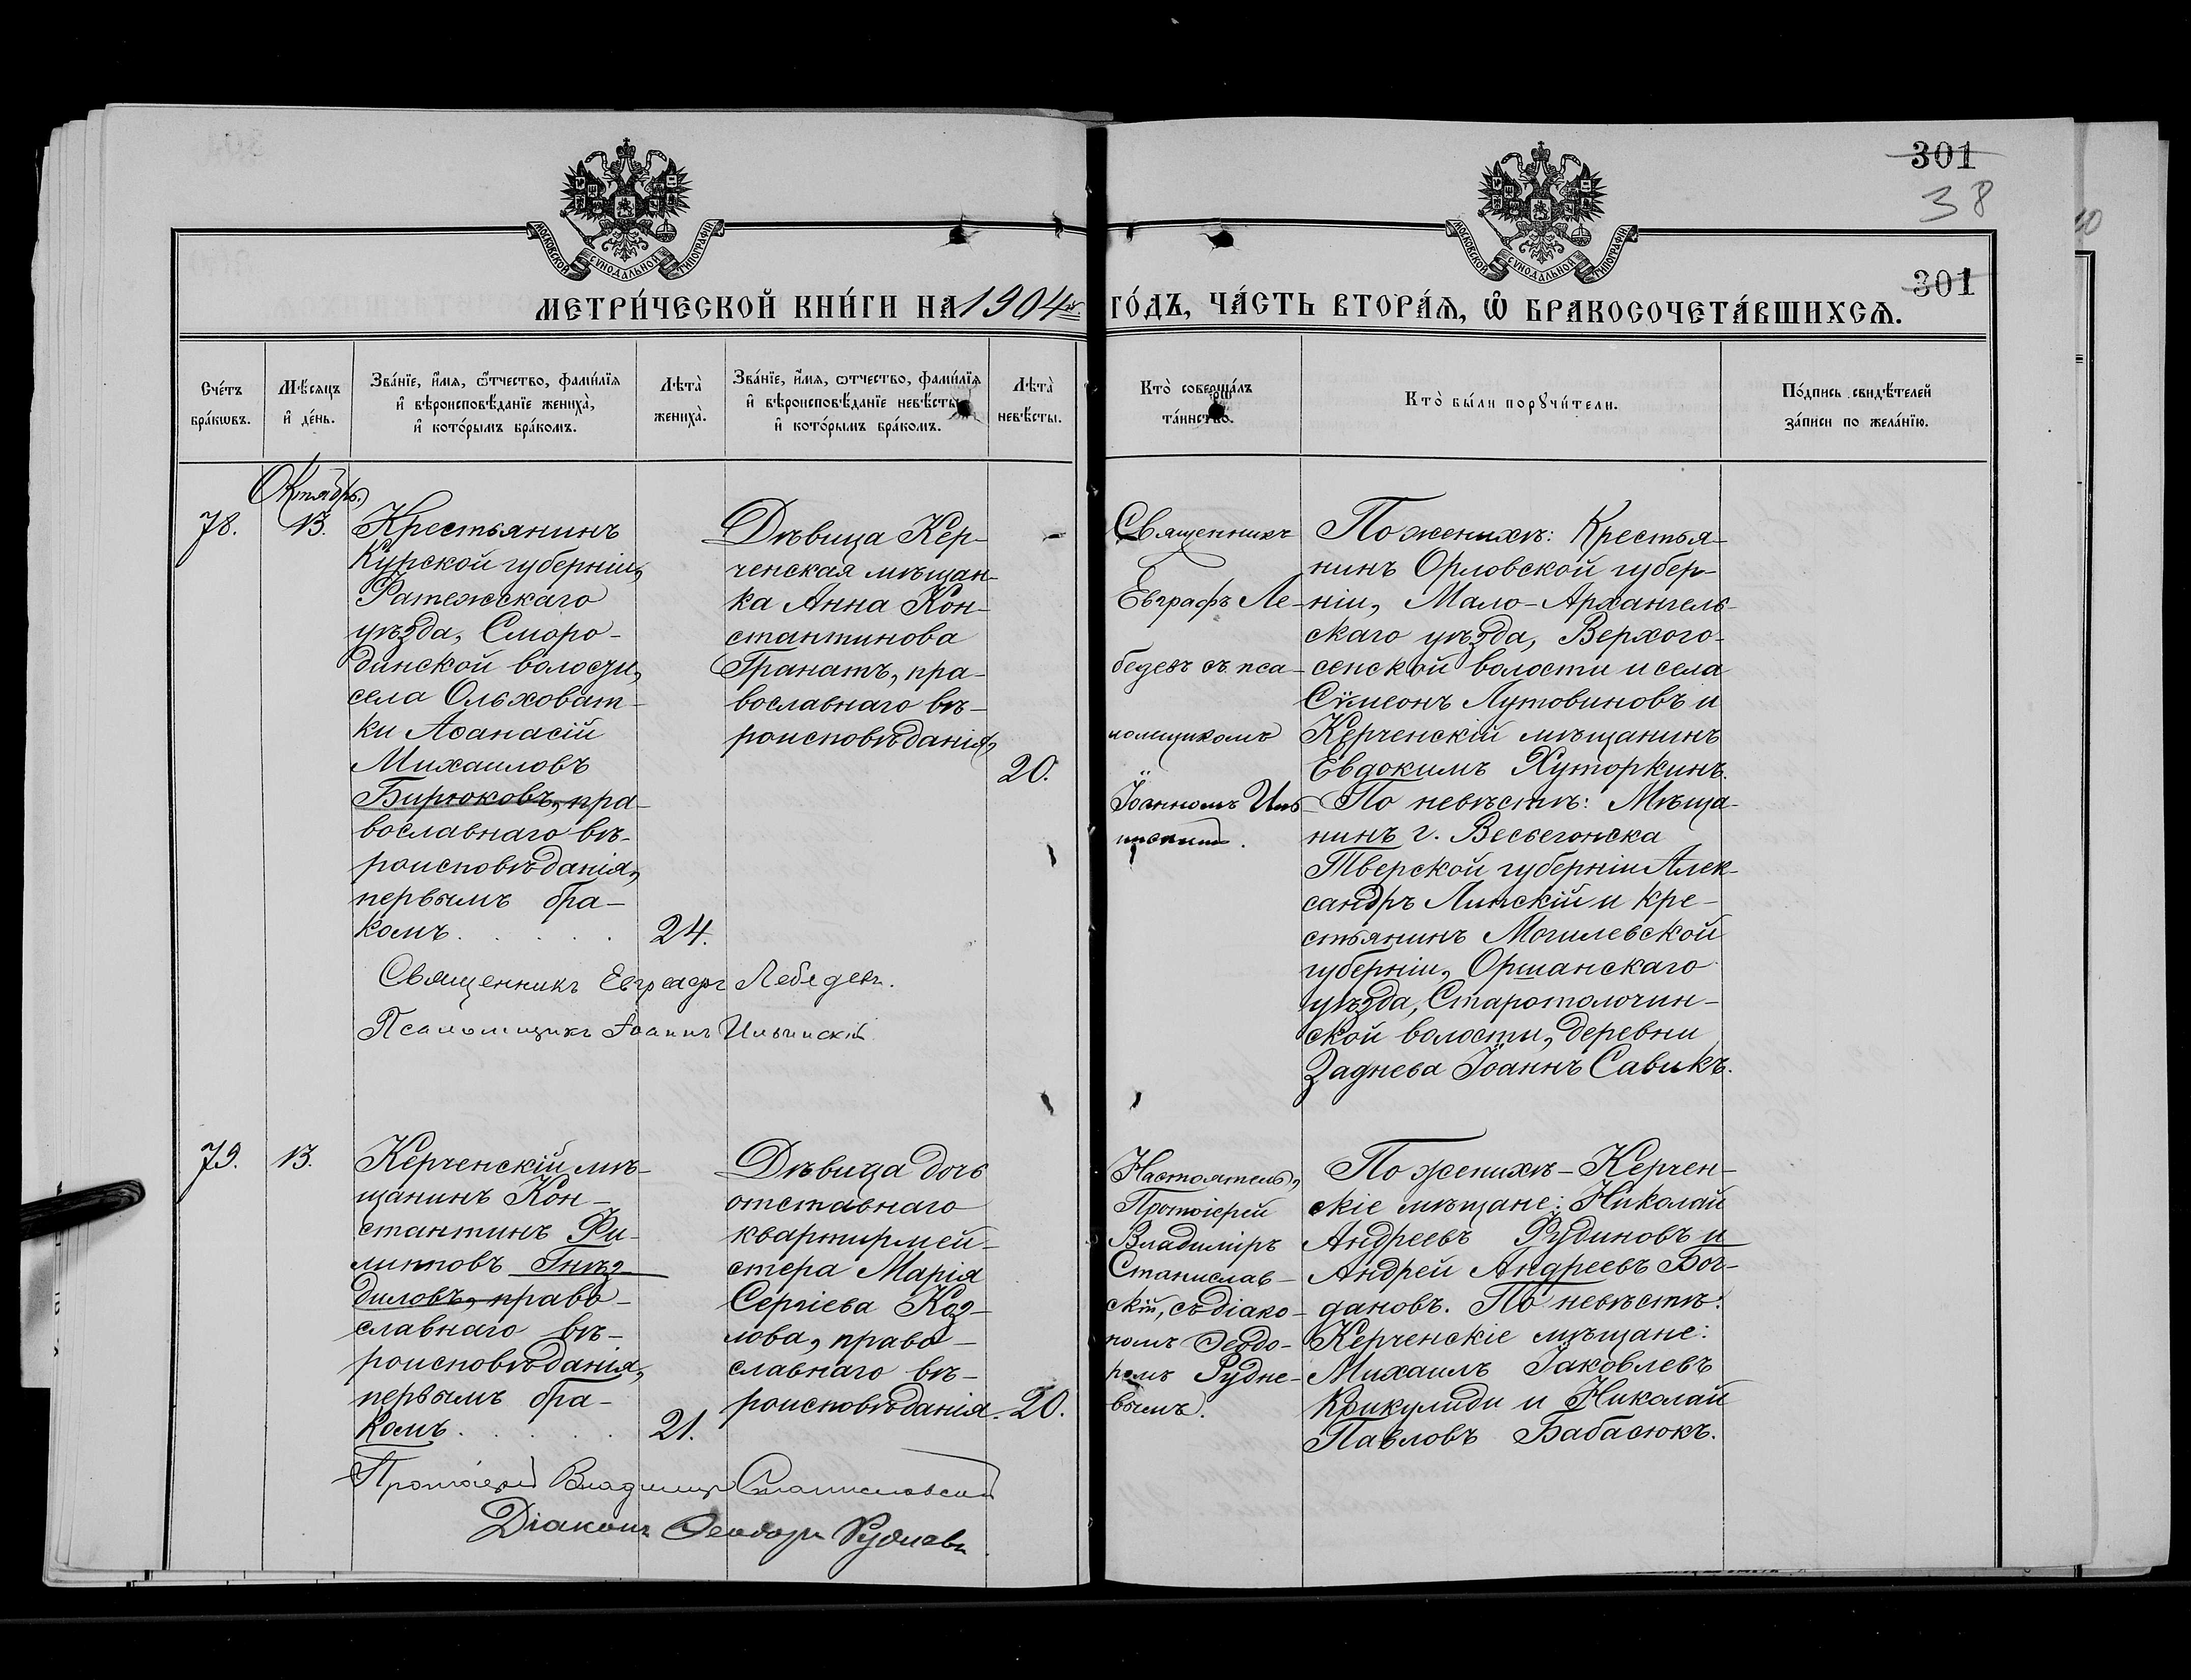 301
38
301
МОСКОВСКОЙ СѴНОДАЛЬНОЙ ТИПОГРАФІИ
МОСКОВСКОЙ СѴНОДАЛЬНОЙ ТИПОГРАФІИ
МЕТРИ́ЧЕСКОЙ КНИ́ГИ НА 1904 й. ГО́ДЪ, ЧА́СТЬ ВТОРА́Ѧ, Ѡ҆ БРАКОСОЧЕТА́ВШИХСѦ.
Сче́тъ
бра́кѡвъ.
Мѣ́сяцъ
и҆ де́нь.
Зва́нїе, и҆́мѧ, ѻ҆́тчество, фами́лїѧ
и҆ вѣроисповѣ́данїе жениха̀,
и҆ кото́рымъ бра́комъ.
Лѣта̀
жениха̀.
Зва́нїе, и҆́мѧ, ѻ҆́тчество, фами́лїѧ
и҆ вѣроисповѣ́данїе невѣ́сты
и҆ кото́рымъ бра́комъ.
Лѣта̀
невѣ́сты.
Кто̀ соверша́лъ
та́инство.
Кто̀ бы́ли порꙋчи́тели.
По́дпись свидѣ́телей
за́писи по жела́нїю.
Октябрь.
78.
13.
Крестьянинъ
Курской губерніи,
Фатежскаго
уѣзда, Сморо-
динской волости,
села Ольховат-
ки Аѳанасій
Михаиловъ
Бирюковъ, пра-
вославнаго вѣ-
роисповѣданія,
первымъ бра-
комъ.
24.
Дѣвица Кер-
ченская мѣщан-
ка Анна Кон-
стантинова
Гранатъ, пра-
вославнаго вѣ-
роисповѣданія,
20.
Священникъ
Евграфъ Ле-
бедевъ съ пса-
ломщикомъ
Іоанномъ Иль-
инскимъ.
По женихѣ: Крестья-
нинъ Орловской губер-
ніи, Мало-Архангель-
скаго уѣзда, Верхого-
сенской волости и села
Сѵмеонъ Лутовиновъ и
Керченскій мѣщанинъ
Евдокимъ Хуторкинъ.
По невѣстѣ: Мѣща-
нинъ г. Весьегонска
Тверской губерніи Алек-
сандръ Липскій и кре-
стьянинъ Могилевской
губерніи, Оршанскаго
уѣзда, Старотолочин-
ской волости, деревни
Заднева Іоаннъ Савикъ.
Священникъ Евграфъ Лебедевъ.
Псаломщикъ Іоаннъ Ильинскій
79.
13.
Керченскій мѣ-
щанинъ Кон-
стантинъ Фи-
липповъ Гнѣз-
диловъ, право-
славнаго вѣ-
роисповѣданія,
первымъ бра-
комъ.
21.
Дѣвица дочь
отставнаго
квартирмей-
стера Марія
Сергіева Коз-
лова, право-
славнаго вѣ-
роисповѣданія.
20.
Настоятель,
Протоіерей
Владиміръ
Станислав-
скій, съ діако-
номъ Ѳеодо-
ромъ Рудне-
вымъ.
По женихѣ - Керчен-
скіе мѣщане: Николай
Андреевъ Рудиновъ и
Андрей Андреевъ Бог-
дановъ. По невѣстѣ:
Керченскіе мѣщане:
Михаилъ Іаковлевъ
Крикулиди и Николай
Павловъ Бабасюкъ.
Протоіерей Владиміръ Станиславскій
Діаконъ Ѳеодоръ Рудневъ